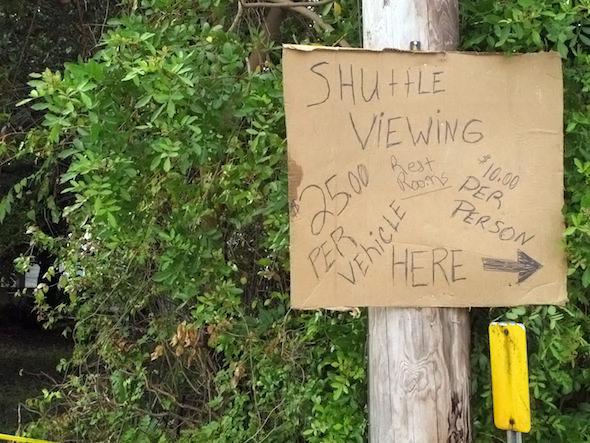 SHUttLE
VIEWING
$25.00
PER
VEHICLE
Rest
Rooms
$10.00
PER
PERSON
HERE